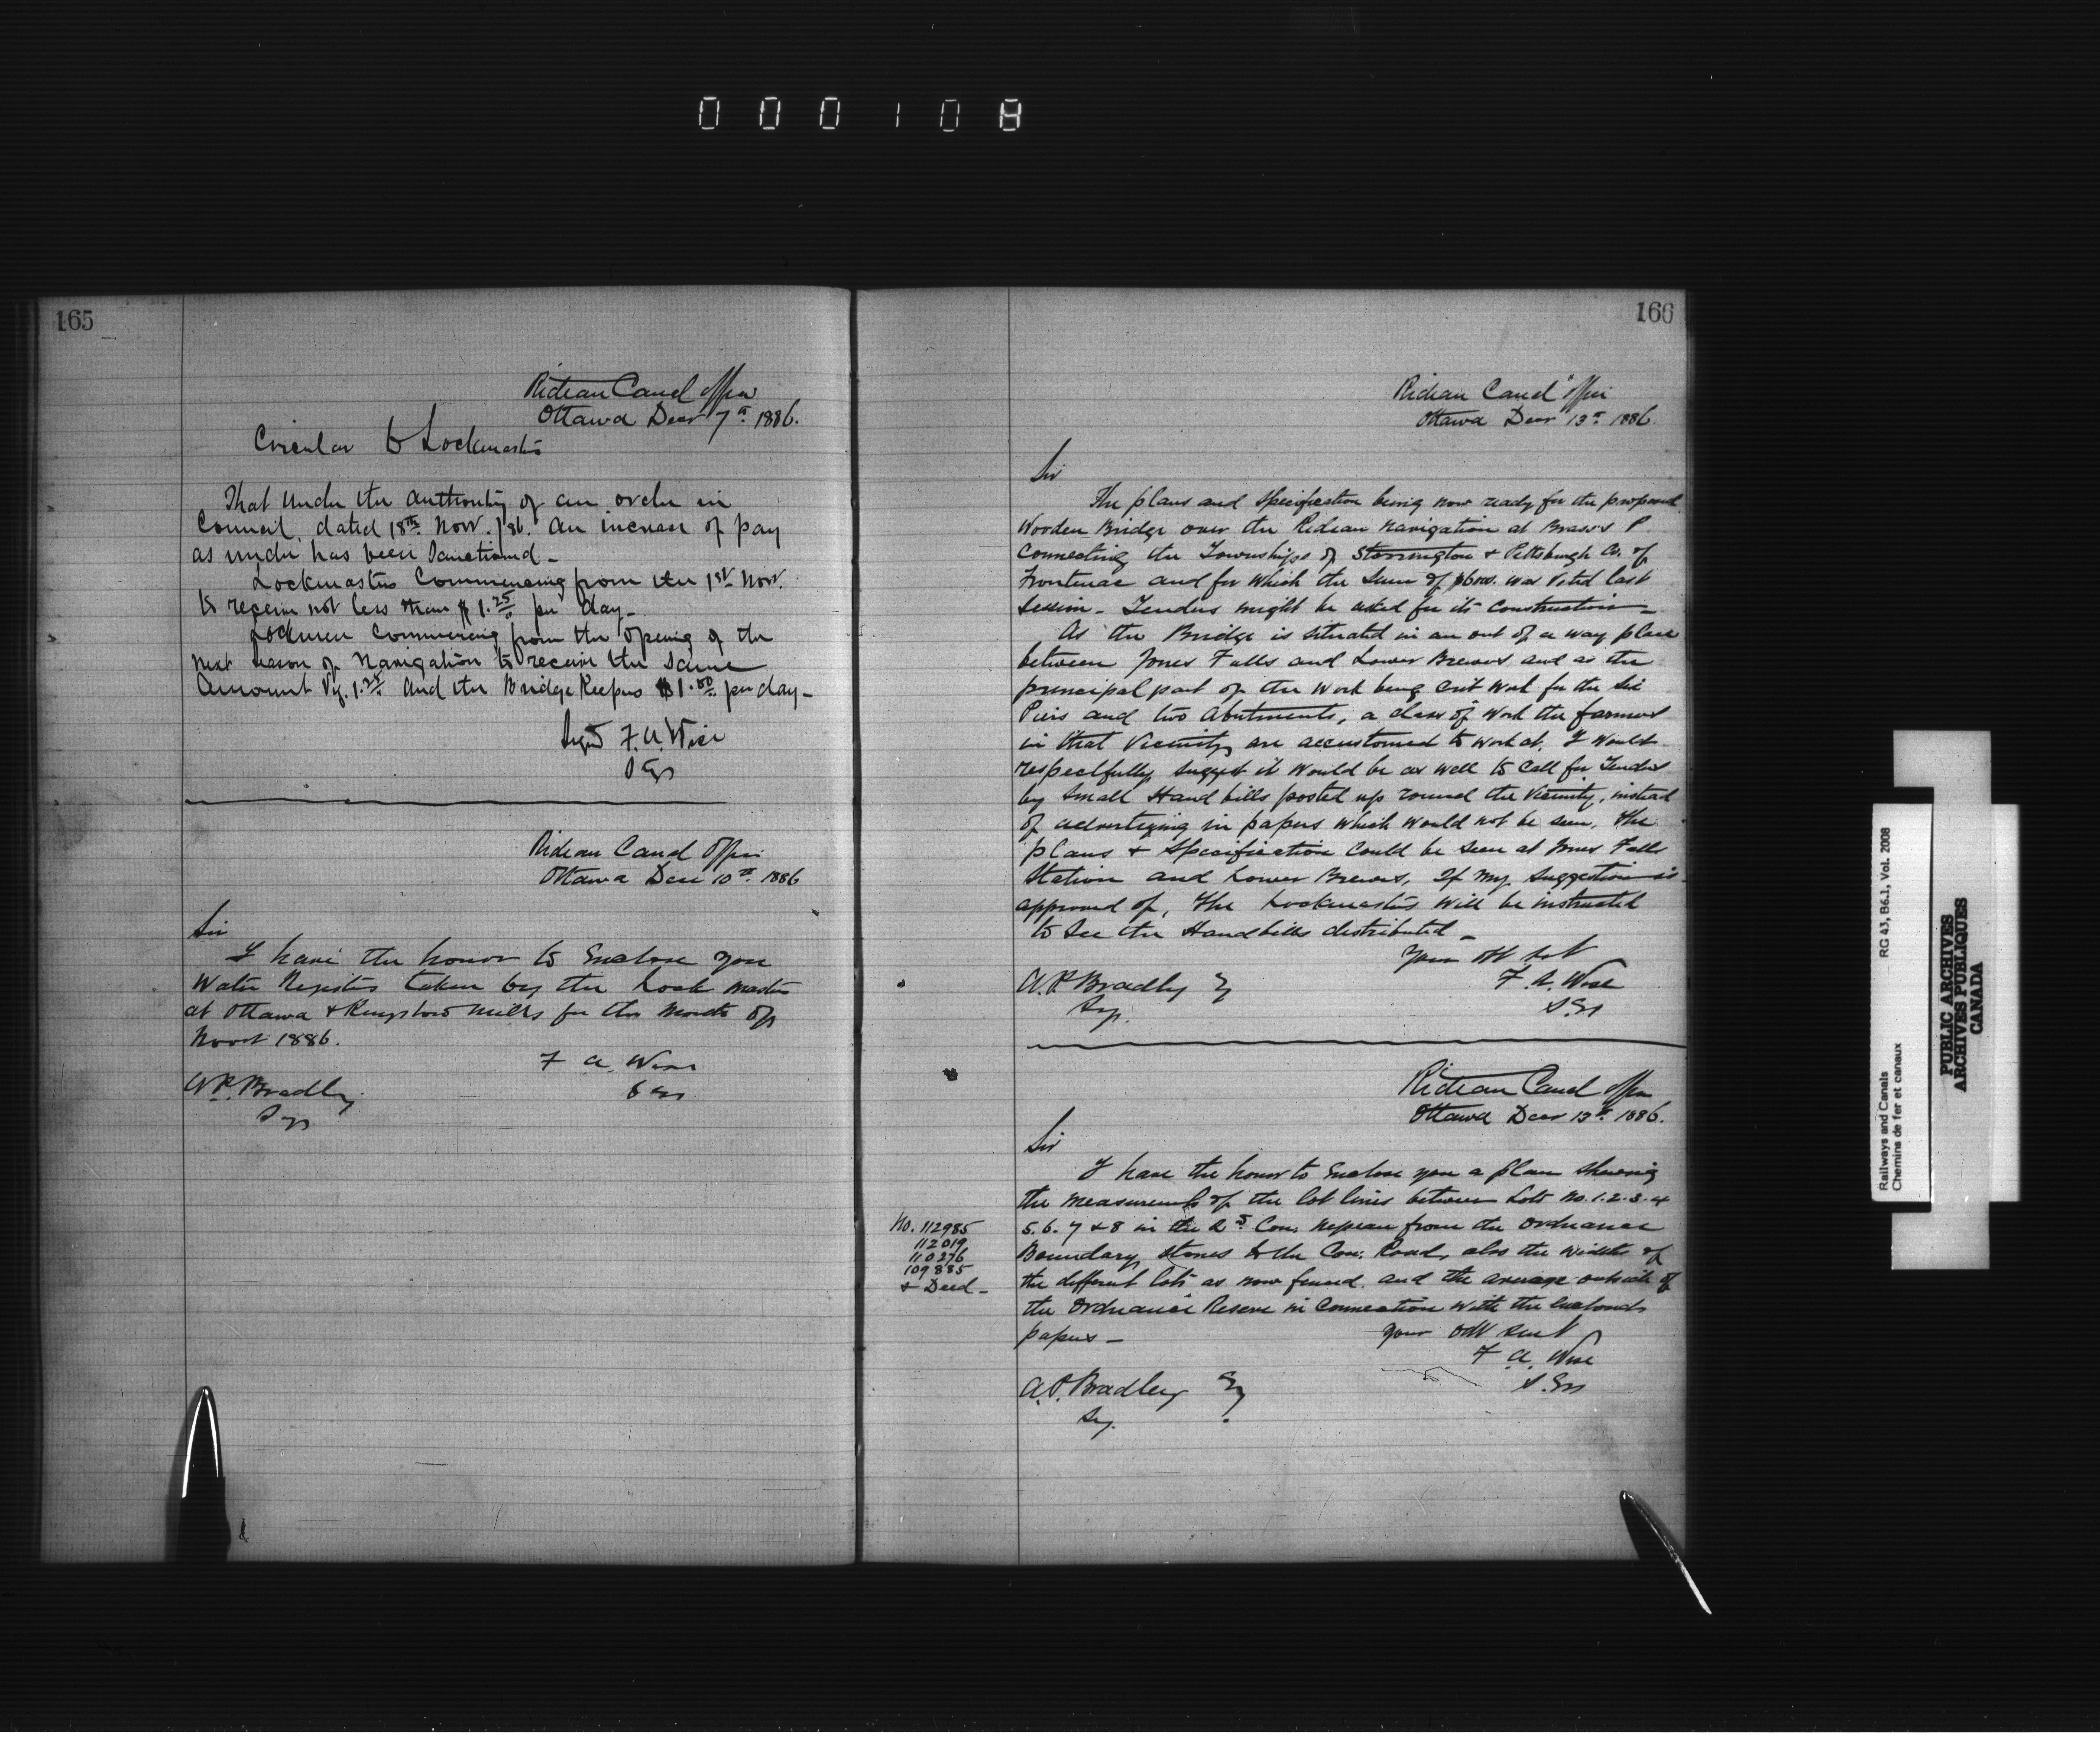 000108
165
Rideau Canal Office
Ottawa Decr 7th 1886.
Circular to Lockmasters
That under the authority of an order in
Council, dated 18th Novr. /86. an increase of pay
as under has been Sanctioned -
Lockmasters Commencing from the 1st Novr.
to receive not less than $1.25 per day -
Lockmen Commencing from the opening of the
next season of Navigation to receive the same
Amount Vz. 1.25 and the Bridge Keepers $1.00 per day -
Sigd F. A. Wise
S Eg
Rideau Canal Office
Ottawa Decr 10th 1886
Sir
I have the honor to Enclose you
Water Registers taken by the Lock master
at Ottawa & Kingston Mills for the Month of
Novr 1886.
F A. Wise
S Eg
A P. Bradley
Sy
166
Rideau Canal Office
Ottawa Decr 13th 1886.
Sir
The plans and specification being now ready for the proposed
Wooden Bridge over the Rideau Navigation at Brass's P
Connecting the Townships of Storrington & Pittsburgh Co. of
Frontenac and for which the Sum of was Voted last
Session - Tenders might be asked for its Construction -
As the Bridge is situated in an out of a way place
between Jones Falls and Lower Brewers and as the
principal part of the Work being Crib Work for the Six
Piers and two Abutments, a class of Work the farmers
in that Vicinity are accustomed to work at. I would
respectfully suggest it would be as well to Call for Tenders
by Small Hand bills posted up round the Vicinity, instead
of advertizing in papers which would not be seen, the
plans & Specification Could be seen at Jones Falls
Station and Lower Brewers, If my suggestion is
approved of, the Lockmasters will be instructed
to See the Handbills distributed -
Your Ob Svt
F. A. Wise
S. Eg
A. P Bradley Eq
Sy.
Rideau Canal Office
Ottawa Decr 13th 1886.
Sir
I have the honor to Enclose you a plan shewing
the measurements of the lot lines between Lots No. 1. 2. 3. 4
5. 6. 7 & 8 in the Con. Nepean from the Ordnance
Boundary Stones to the Con. Road, also the width of
the different lots as now fenced. and the average outside of
the Ordnance Reserve in Connection with the enclosed
papers -
No. 112985
112019
110276
109885
& Deed -
Your Obt Servt
F. A. Wise
S. Eg
A. P. Bradley Eq
Sy.
Railways and Canals
Chemins de fer et canaux
RG 43, B6.1, Vol. 2008
PUBLIC ARCHIVES
ARCHIVES PUBLIQUES
CANADA